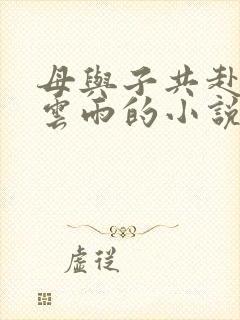 母與子共赴
雲雨的小說
虛從